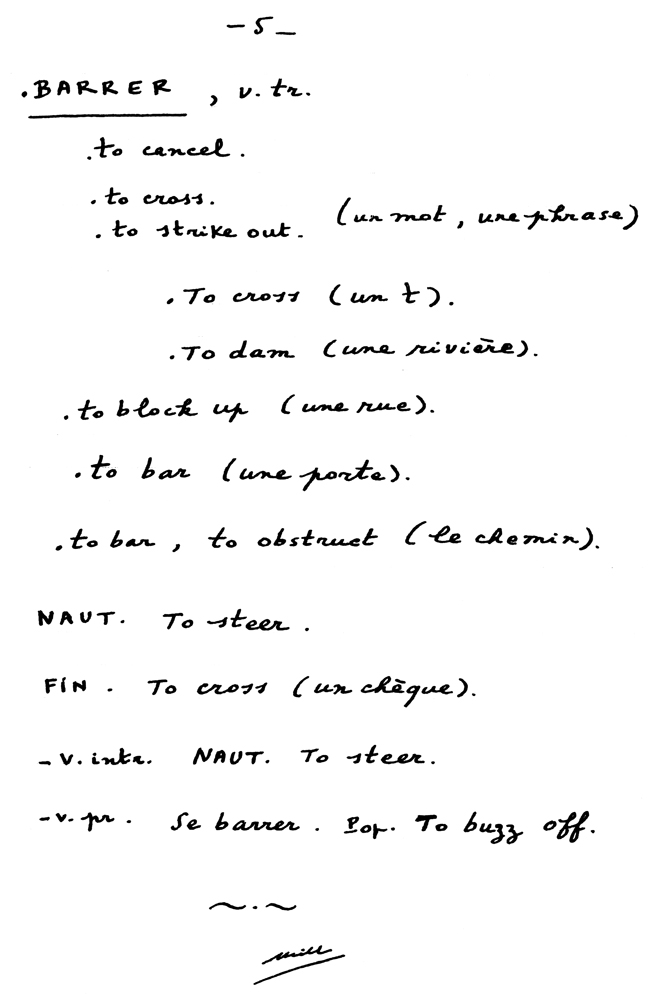 - 5 -
. BARRER , v. tr.
. to cancel .
. to cross.
. to strike out. (un mot, une phrase)
. To cross (un t).
. To dam (une rivière).
. to block up (une rue).
. to bar (une porte).
. to bar, to obstruct (le chemin).
NAUT. To steer .
FIN . To cross (un chèque).
- v. intr. NAUT. To steer.
- v. pr . Se barrer . Pop. To buzz off.
~.~